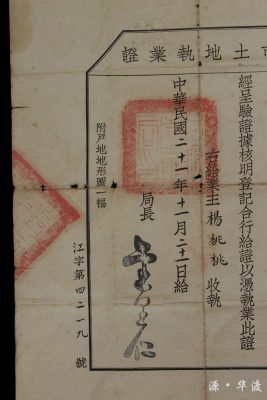 市土地執業證
經呈驗證據核明登記合行給證以憑執業此證
右給業主楊桃桃收執
中華民國二十一年十一月二十二日給
局長
附戶地地形圖一幅
江字第四二一九號
源·华渡